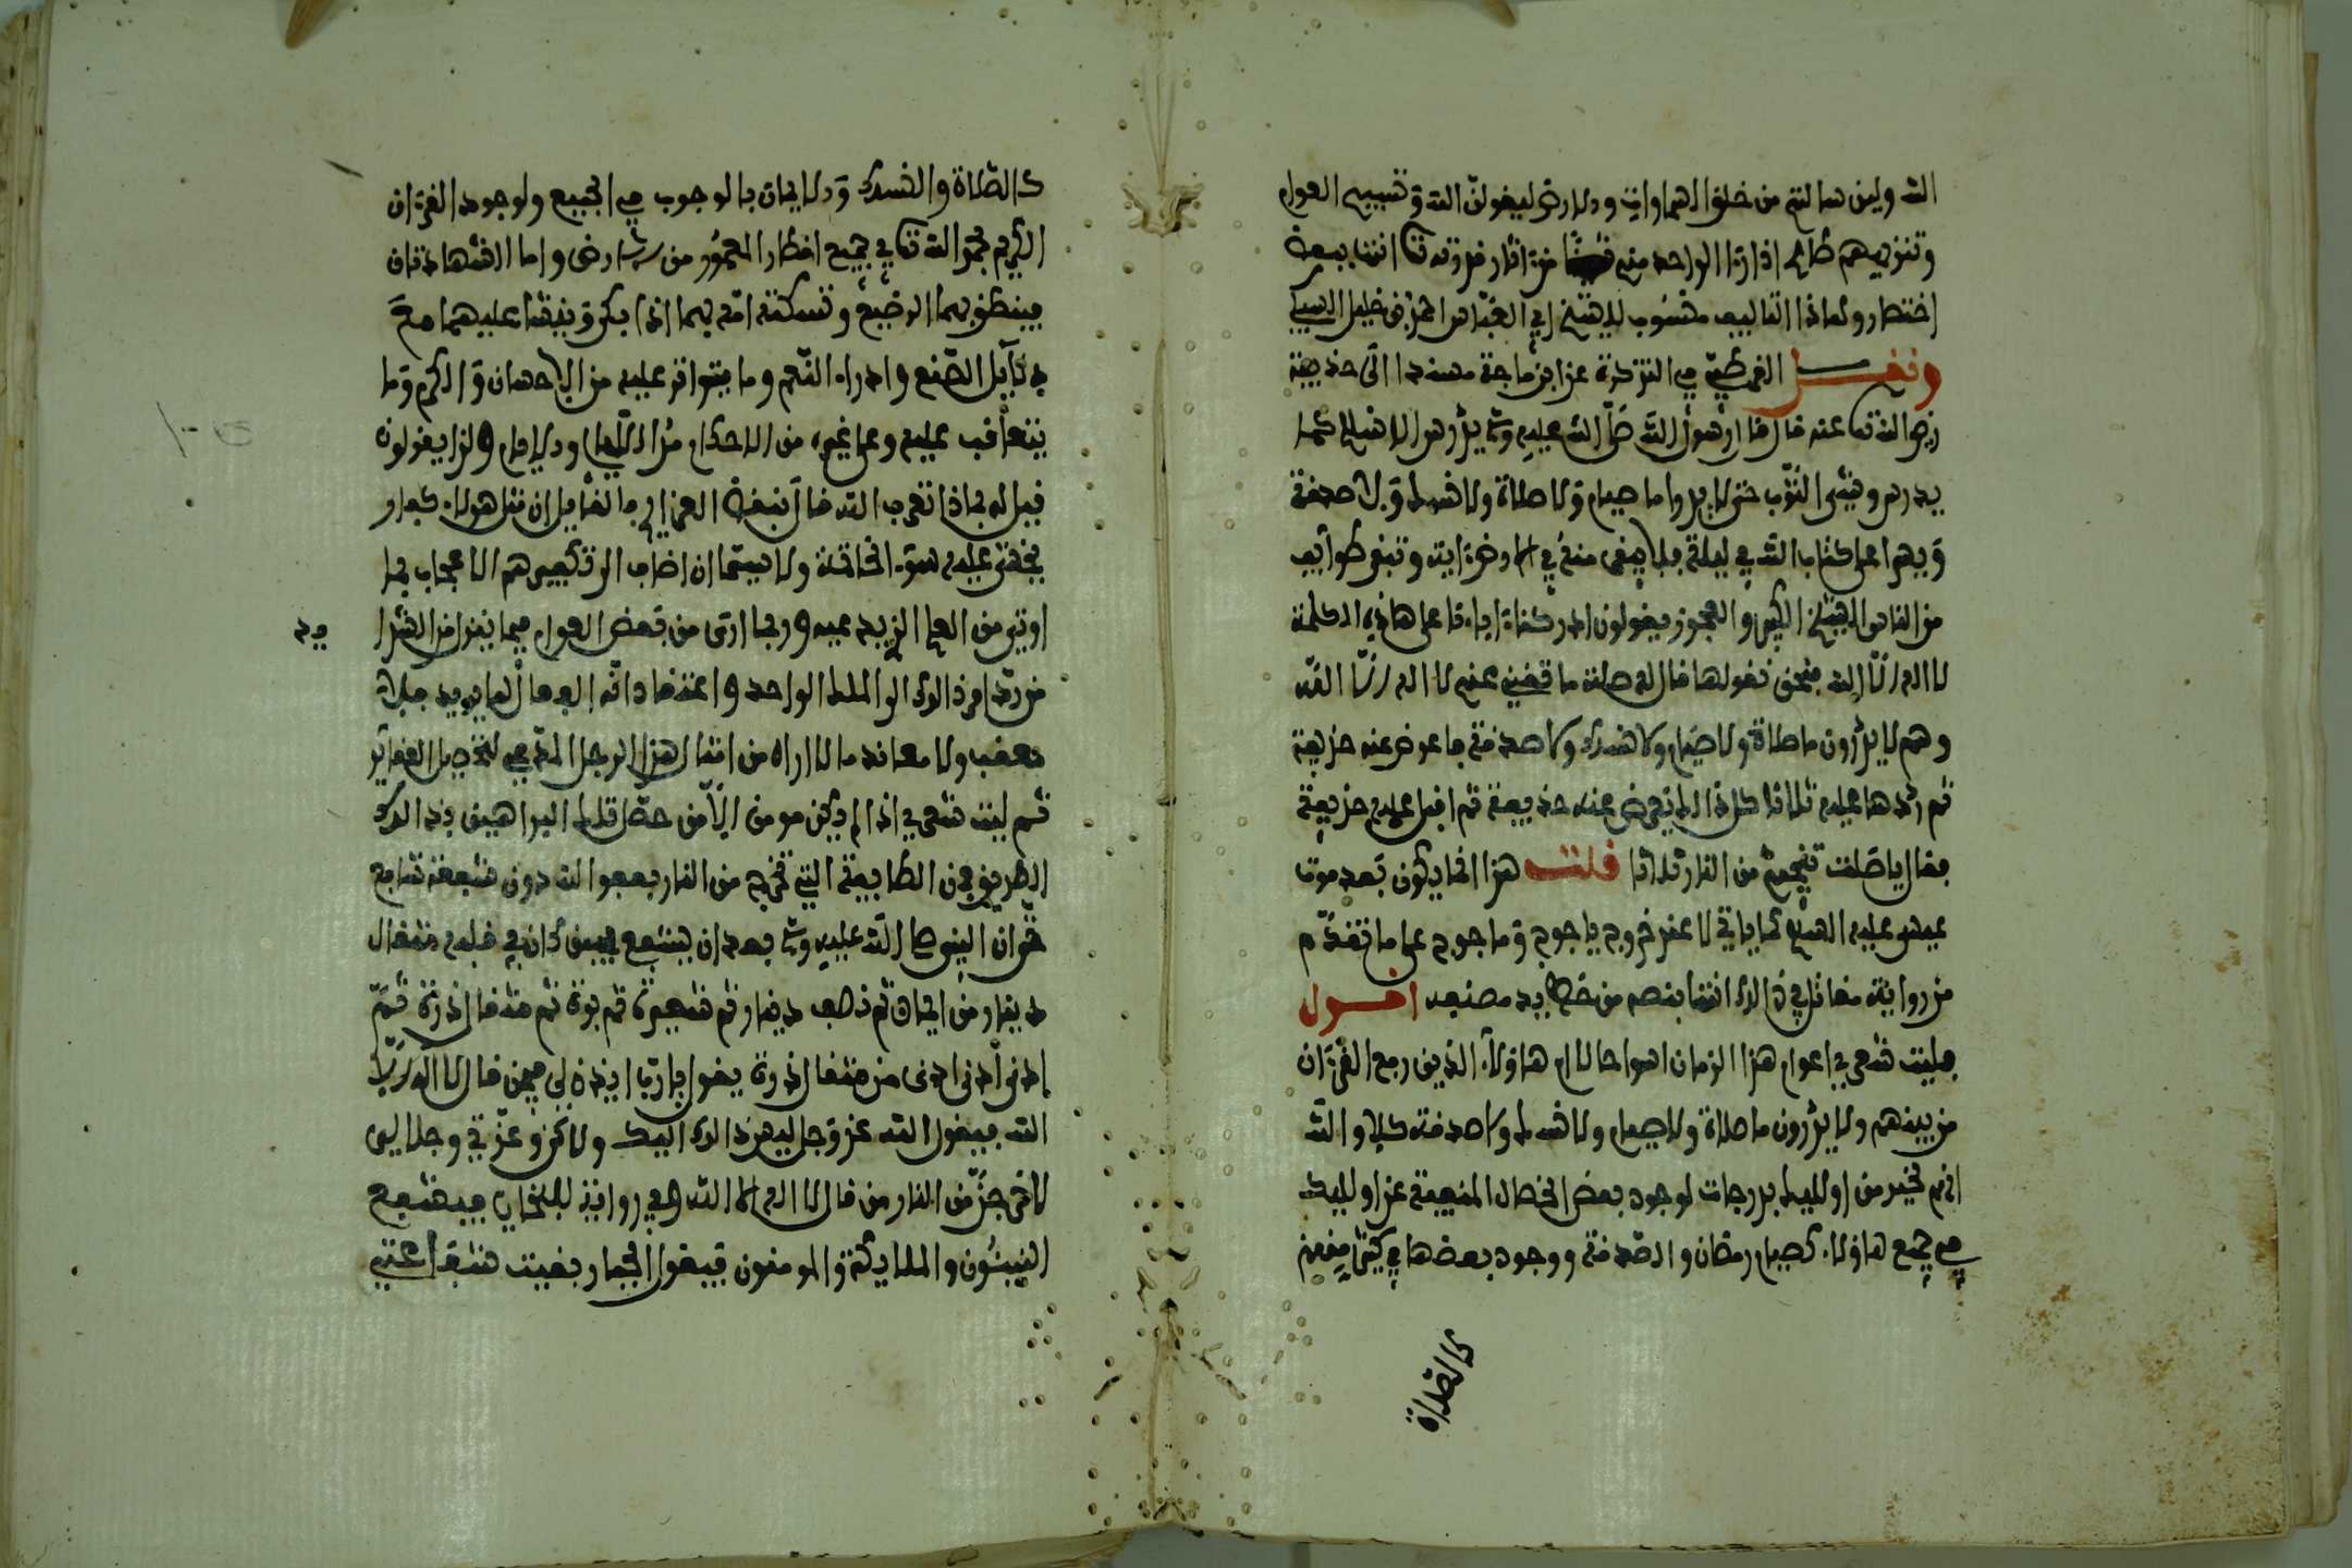 الله ولين سالتهم من خلق السماوات والارض ليقولن الله وتسبيح العوام
وتنزيههم ظاهر اذا رءا الواحد منهم شيئا من اثار قدرته تعالى انتهى ببعض
اختصار وهاذا التاليف منسوب للشيخ ابي العباس احمد بن خليل السبيلي
ونقل القرطبي في التذكرة عن ابن ماجة مسندا الى حذيفة
رضي الله تعالى عنه قال قال رسول الله صلى الله عليه وسلم يدرس الاسلام كما
يدرس وشي الثوب حتى لا يدروا ما صيام ولا صلاة ولا نسك ولا صدقة
ويسرا على كتاب الله في ليلة فلا يبقى منه في الارض ءاية وتبقى طوائف
من الناس الشيخ الكبير والعجوز يقولون ادركنا ءاباءنا على هاذه الكلمة
لا اله الا الله فنحن نقولها قال له صلة ما تغني عنهم لا اله الا الله
وهم لا يدرون ما صلاة ولا صيام ولا نسك ولا صدقة فاعرض عنه حذيفة
ثم ردها عليه ثلاثا كل ذالك يعرض عنه حذيفة ثم اقبل عليه حذيفة
فقال يا صلة تنجيهم من النار ثلاثا قلت هذا انما يكون بعد موت
عيسى عليه السلام كما ياتي لا عند خروج ياجوج وماجوج على ما تقدم
من رواية مقاتل في ذالك انتهى بنصه من خط يد مصنفه اقول
فليت شعري اعوام هذا الزمان اسوا حالا ام هاؤلاء الذين رفع القرءان
من بينهم ولا يدرون ما صلاة ولا صيام ولا نسك ولا صدقة كلا والله
انهم لخير من اوليك بدرجات لوجود بعض الخصال المنفية عن اوليك
في جميع هاؤلاء كصيام رمضان والصدقة ووجود بعضها في كثير منهم
كالصلاة
كالصلاة والنسك والايمان بالوجوب في الجميع ولوجود القرءان
الكريم بحمد الله تعالى في جميع اقطار المعمور من الارض واما الشهادتان
فينطق بهما الرضيع وتسكته امه بهما اذا بكى وينشا عليهما مع
دلائل الصنع وادرار النعم وما يتواتر عليه من الاحسان والكرم وما
يتعاقب عليه وعلى غيره من الاحكام من الليالي والايام ولذا يقولون
قيل له بماذا تعرف الله قال بنقض العزائم فالقائل ان مثل هولاء كفار
يخشى عليه سوء الخاتمة ولا سيما ان اضاف الى تكفيرهم الاعجاب بما
اوتي من العلم الزهيد عنده وربما ارتى من بعض العوام فيما يقرا من القرءان
من رد امر ذالك الى الملك الواحد واعتقاد انه الفعال لما يريد فلا
معقب ولا معاند ما لا اراه من امثال هذا الرجل المدعي لتحصيل العقائد
ثم ليت شعري اذا لم يكن مومن الا من حصل تلك البراهين بذالك
الطريق فمن الطايفة التي تخرج من النار بعفو الله دون شفعة شافع
حتى ان النبي صلى الله عليه وسلم بعد ان يشفع فيمن كان في قلبه مثقال
دينار من ايمان ثم نصف دينار ثم شعيرة ثم برة ثم مثقال ذرة ثم
ادنى ادنى ادنى من مثقال ذرة يقول يا رب ايذن لي فيمن قال لا اله الا
الله فيقول الله عز وجل ليس ذالك اليك ولاكن وعزتي وجلالي
لاخرجن من النار من قال لا اله الا الله وفي رواية للبخاري فيشفع
النبيئون والملايكة والمومنون فيقول الجبار بقيت شفاعتي